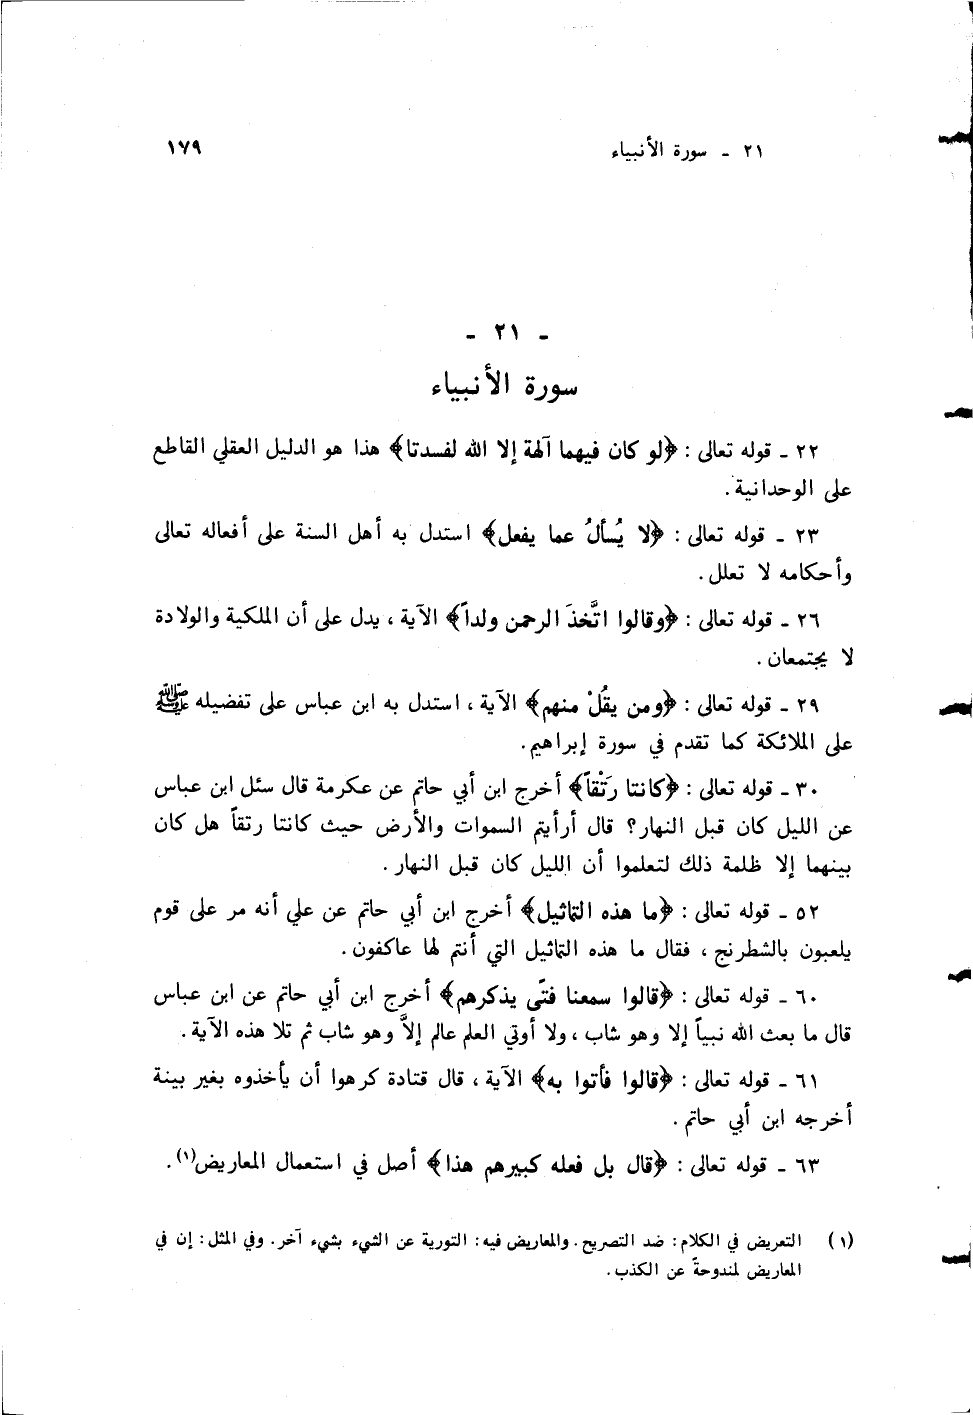 ٢١ ـ سورة الأنبياء ١٧٩
ـ ٢١ ـ
سورة الأنبياء
٢٢ ـ قوله تعالى : ﴿لو كان فيهما آلهة إلا الله لفسدتا﴾ هذا هو الدليل العقلي القاطع
على الوحدانية .
٢٣ ـ قوله تعالى : ﴿لا يُسألُ عما يفعل﴾ استدل به أهل السنة على أفعاله تعالى
وأحكامه لا تعلل .
٢٦ ـ قوله تعالى : ﴿وقالوا اتَّخذَ الرحمن ولداً﴾ الآية ، يدل على أن الملكية والولادة
لا يجتمعان .
٢٩ ـ قوله تعالى : ﴿ومن يقُلْ منهم﴾ الآية ، استدل به ابن عباس على تفضيله ﷺ
على الملائكة كما تقدم في سورة إبراهيم .
٣٠ ـ قوله تعالى : ﴿كانتا رَتْقاً﴾ أخرج ابن أبي حاتم عن عكرمة قال سئل ابن عباس
عن الليل كان قبل النهار؟ قال أرأيتم السموات والأرض حيث كانتا رتقاً هل كان
بينهما إلا ظلمة ذلك لتعلموا أن الليل كان قبل النهار .
٥٢ ـ قوله تعالى : ﴿ما هذه التماثيل﴾ أخرج ابن أبي حاتم عن علي أنه مر على قوم
يلعبون بالشطرنج ، فقال ما هذه التماثيل التي أنتم لها عاكفون .
٦٠ ـ قوله تعالى : ﴿قالوا سمعنا فتًى يذكرهم﴾ أخرج ابن أبي حاتم عن ابن عباس
قال ما بعث الله نبياً إلا وهو شاب ، ولا أوتي العلم عالم إلاَّ وهو شاب ثم تلا هذه الآية .
٦١ ـ قوله تعالى : ﴿قالوا فأتوا به﴾ الآية ، قال قتادة كرهوا أن يأخذوه بغير بينة
أخرجه ابن أبي حاتم .
٦٣ ـ قوله تعالى : ﴿قال بل فعله كبيرهم هذا﴾ أصل في استعمال المعاريض(١) .
(١) التعريض في الكلام : ضد التصريح . والمعاريض فيه : التورية عن الشيء بشيء آخر . وفي المثل : إن في
المعاريض لمندوحةً عن الكذب .